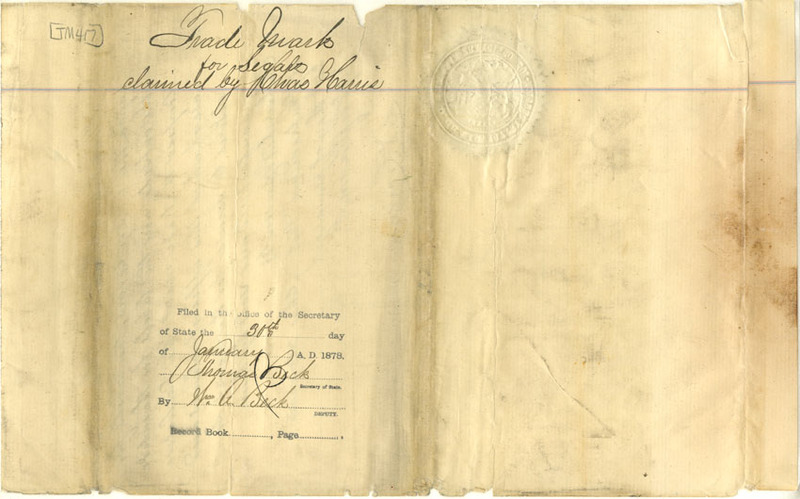 [TM417]
Trade Mark
for Segars
claimed by Chas Harris
Filed in the office of the Secretary
of State the 30th day
of January A. D. 1878.
Thomas Beck
Secretary of State.
By Wm A Beck
DEPUTY.
Record Book, Page